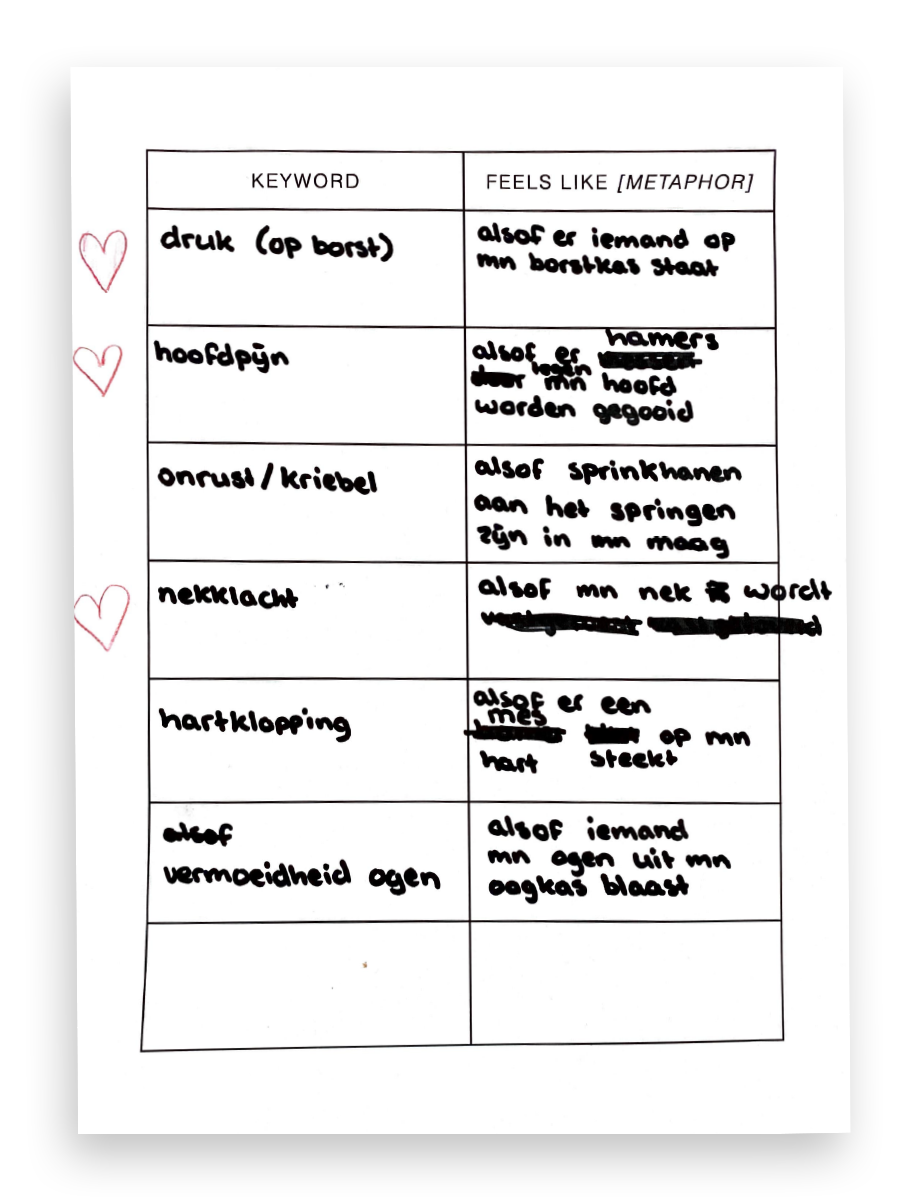 KEYWORD
FEELS LIKE [METAPHOR]
druk (op borst)
alsof er iemand op
mn borstkas staat
hoofdpijn
hamers
alsof er
tegen
mn hoofd
worden gegooid
onrust/kriebel
alsof sprinkhanen
aan het springen
zijn in mn maag
nekklacht
alsof mn nek wordt
hartklopping
alsof er een
mes
op mn
hart steekt
alsof
vermoeidheid ogen
alsof iemand
mn ogen uit mn
oogkas blaast